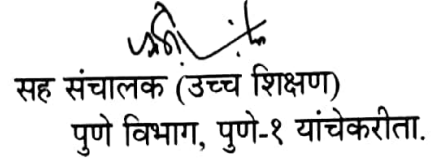 सह संचालक (उच्च शिक्षण)
पुणे विभाग, पुणे-१ यांचेकरीता.